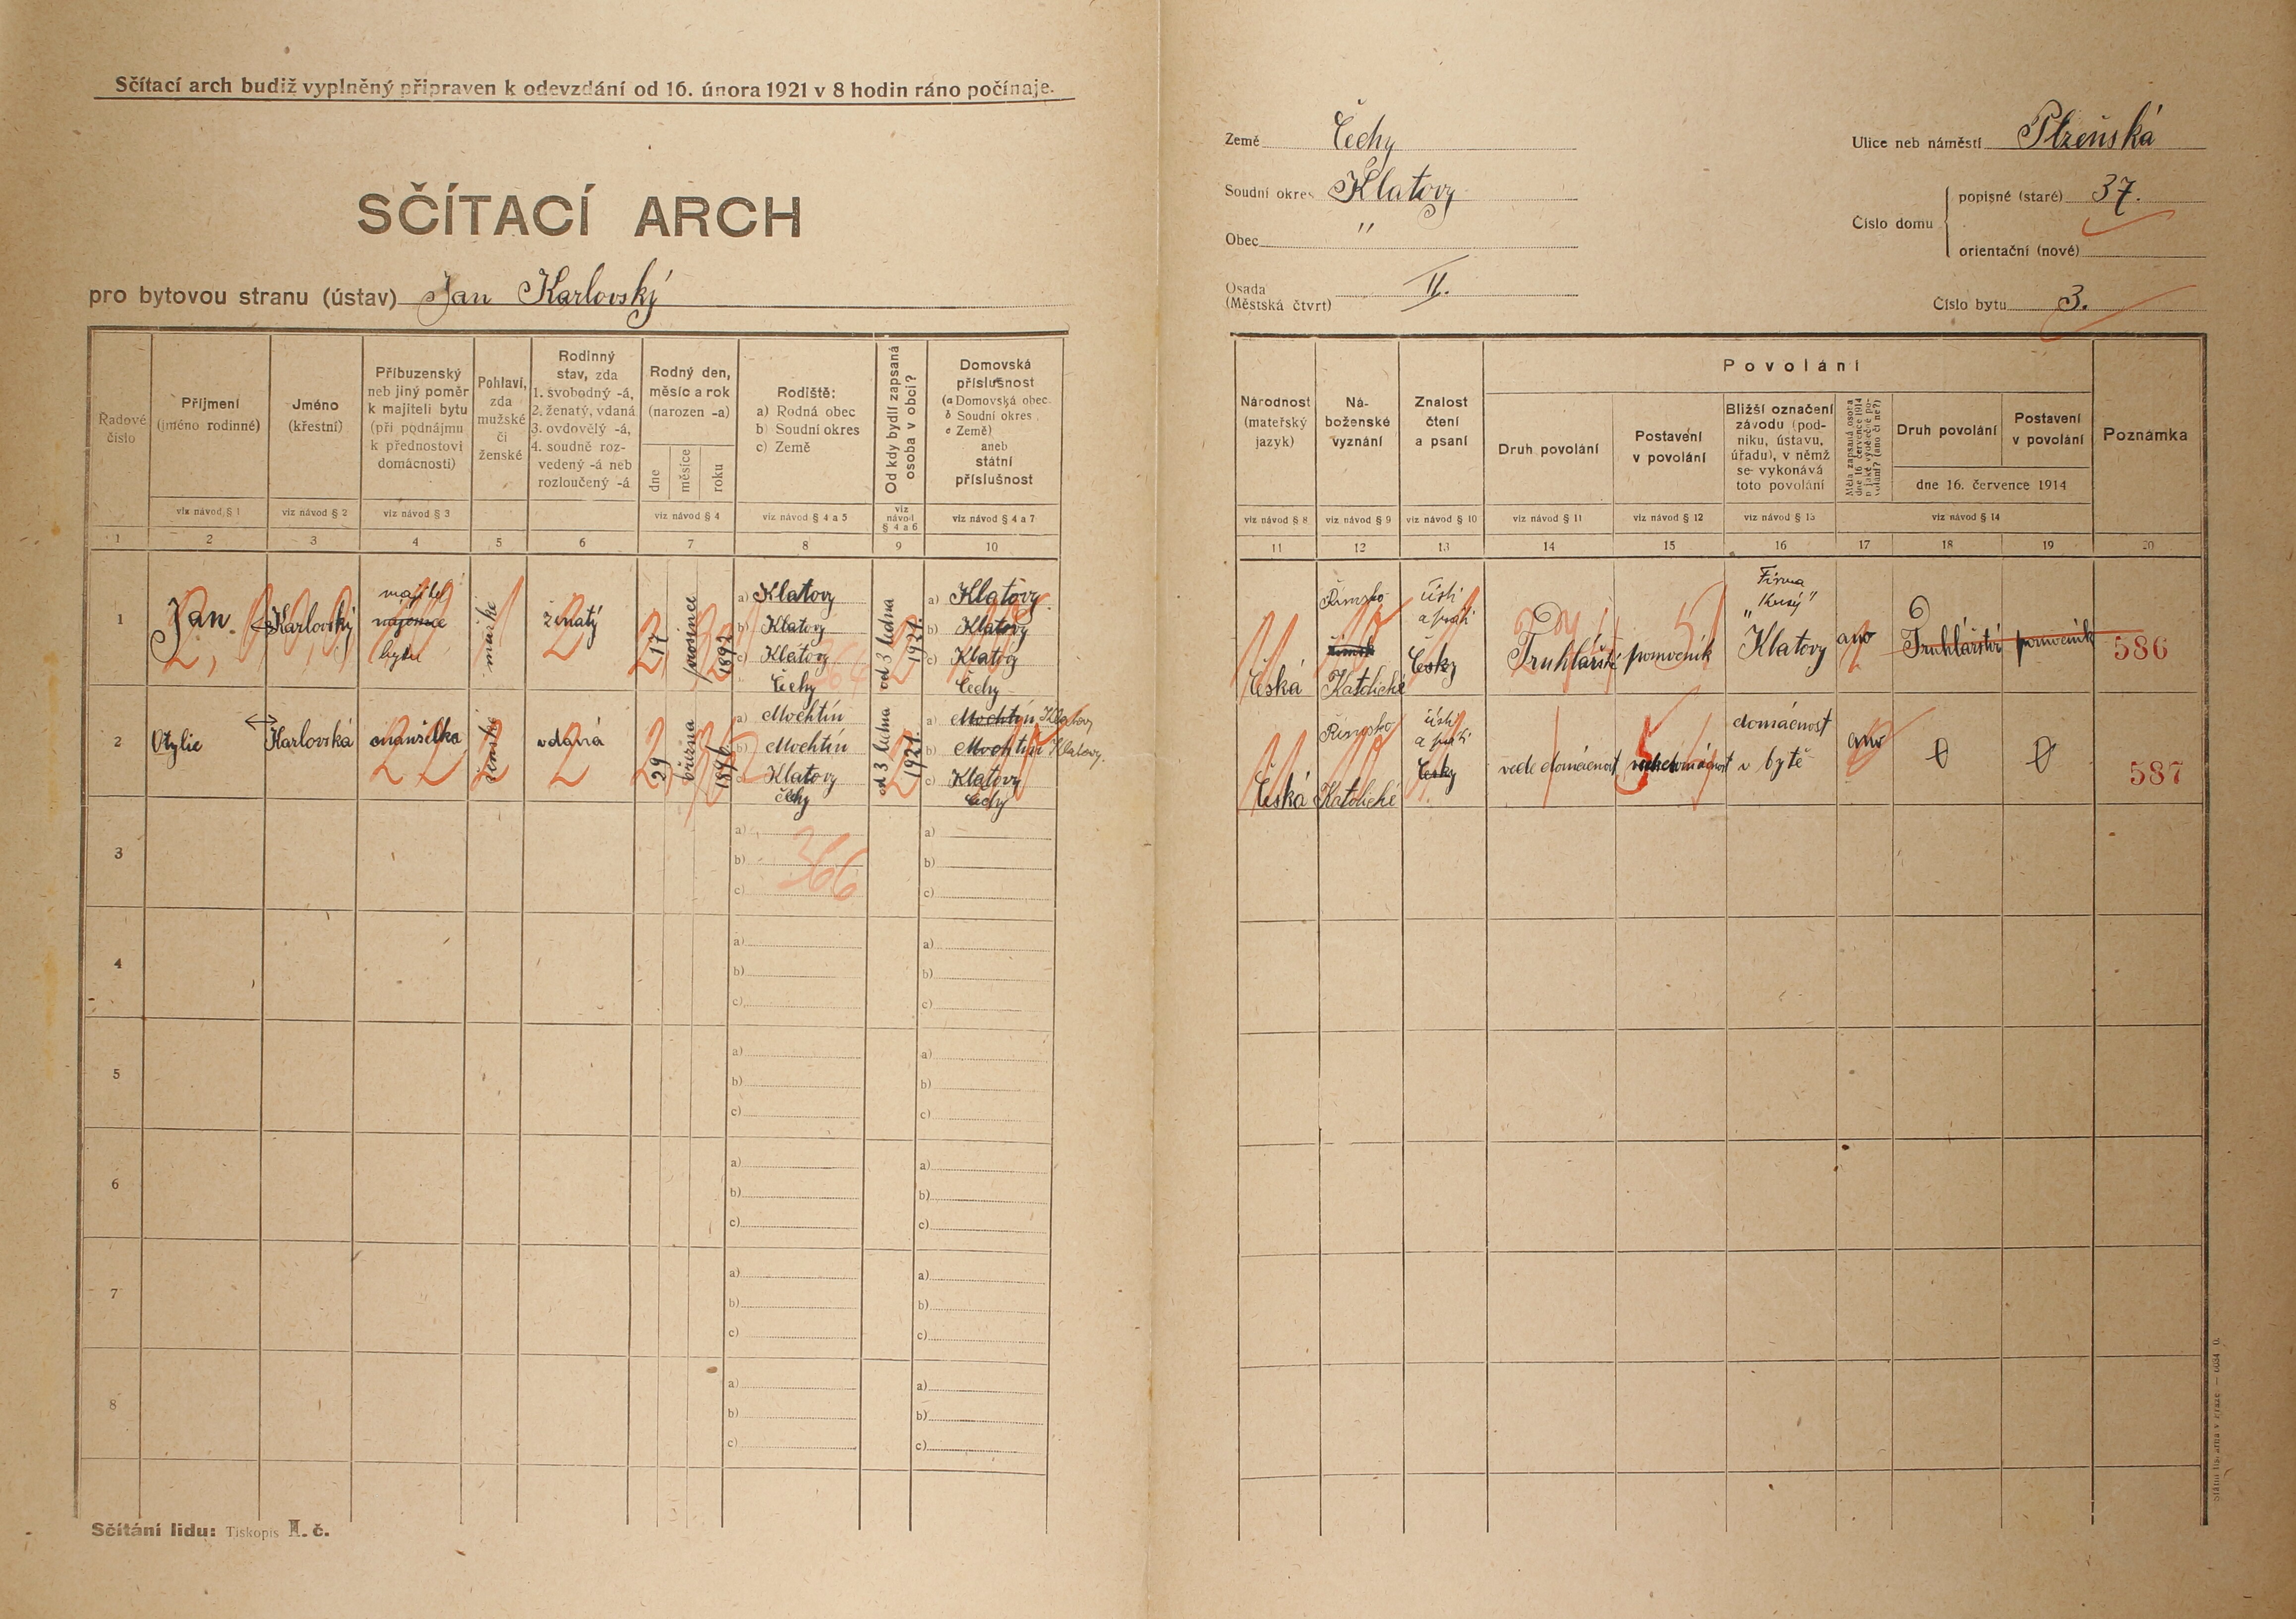 Sčítací arch budiž vyplněný připraven k odevzdání od 16. února 1921 v 8 hodin ráno počínaje.
SČÍTACÍ ARCH
pro bytovou stranu (ústav) Jan Karlovský
Země Čechy
Soudní okres Klatovy
Obec "
Osada
(Městská čtvrt) II.
Ulice neb náměstí Plzeňská
Číslo domu
popisné (staré) 37.
orientační (nové)
Číslo bytu 3.
Řadové
číslo
Příjmení
(jméno rodinné)
viz návod § 1
Jméno
(křestní)
viz návod § 2
Příbuzenský
neb jiný poměr
k majiteli bytu
(při podnájmu
k přednostovi
domácnosti)
viz návod § 3
Pohlaví,
zda
mužské
či
ženské
Rodinný
stav, zda
1. svobodný -á,
2. ženatý, vdaná
3. ovdovělý -á,
4. soudně roz-
vedený -á neb
rozloučený -á
Rodný den,
měsíc a rok
(narozen -a)
dne
měsíce
roku
viz návod § 4
Rodiště:
a) Rodná obec
b) Soudní okres
c) Země
viz návod § 4 a 5
Od kdy bydlí zapsaná
osoba v obci?
viz
návod
§ 4 a 6
Domovská
příslušnost
(a Domovská obec
b Soudní okres
c Země)
aneb
státní
příslušnost
viz návod § 4 a 7
1 2 3 4 5 6 7 8 9 10
Národnost
(mateřský
jazyk)
viz návod § 8
Ná-
boženské
vyznání
viz návod § 9
Znalost
čtení
a psaní
viz návod § 10
Povolání
Druh povolání
viz návod § 11
Postavení
v povolání
viz návod § 12
Bližší označení
závodu (pod-
niku, ústavu,
úřadu), v němž
se vykonává
toto povolání
viz návod § 13
Měla zapsaná osoba
dne 16 července 1914
nějaké výdělečné po-
volání? (ano či ne?)
Druh povolání
Postavení
v povolání
dne 16. července 1914
viz návod § 14
Poznámka
11 12 13 14 15 16 17 18 19 20
1
Jan
Karlovský
majitel
nájemce
bytu
mužské
ženatý
17
prosince
1892
a) Klatovy
b) Klatovy
c) Klatovy
Čechy
od 3 ledna
1921.
a) Klatovy
b) Klatovy
c) Klatovy
Čechy
Česká
Římsko
Katolické
čísti
a psáti
Česky
Truhlářství
pomocník
Firma
"Kusý"
Klatovy
ano
Truhlářství
pomocník
586
2
Otylie
Karlovská
manželka
ženské
vdaná
29
března
1896
a) Mochtín
b) Mochtín
c) Klatovy
Čechy
od 3 ledna
1921.
a) Mochtín Klatovy
b) Mochtín Klatovy.
c) Klatovy
Čechy
Česká
Římsko
Katolické
čísti
a psáti
Česky
vede domácnost
domácnost
v bytě
ano
0
0
587
3
a)
b)
c)
366
a)
b)
c)
4
a)
b)
c)
a)
b)
c)
5
a)
b)
c)
a)
b)
c)
6
a)
b)
c)
a)
b)
c)
7
a)
b)
c)
a)
b)
c)
8
a)
b)
c)
a)
b)
c)
Sčítání lidu: Tiskopis I. č.